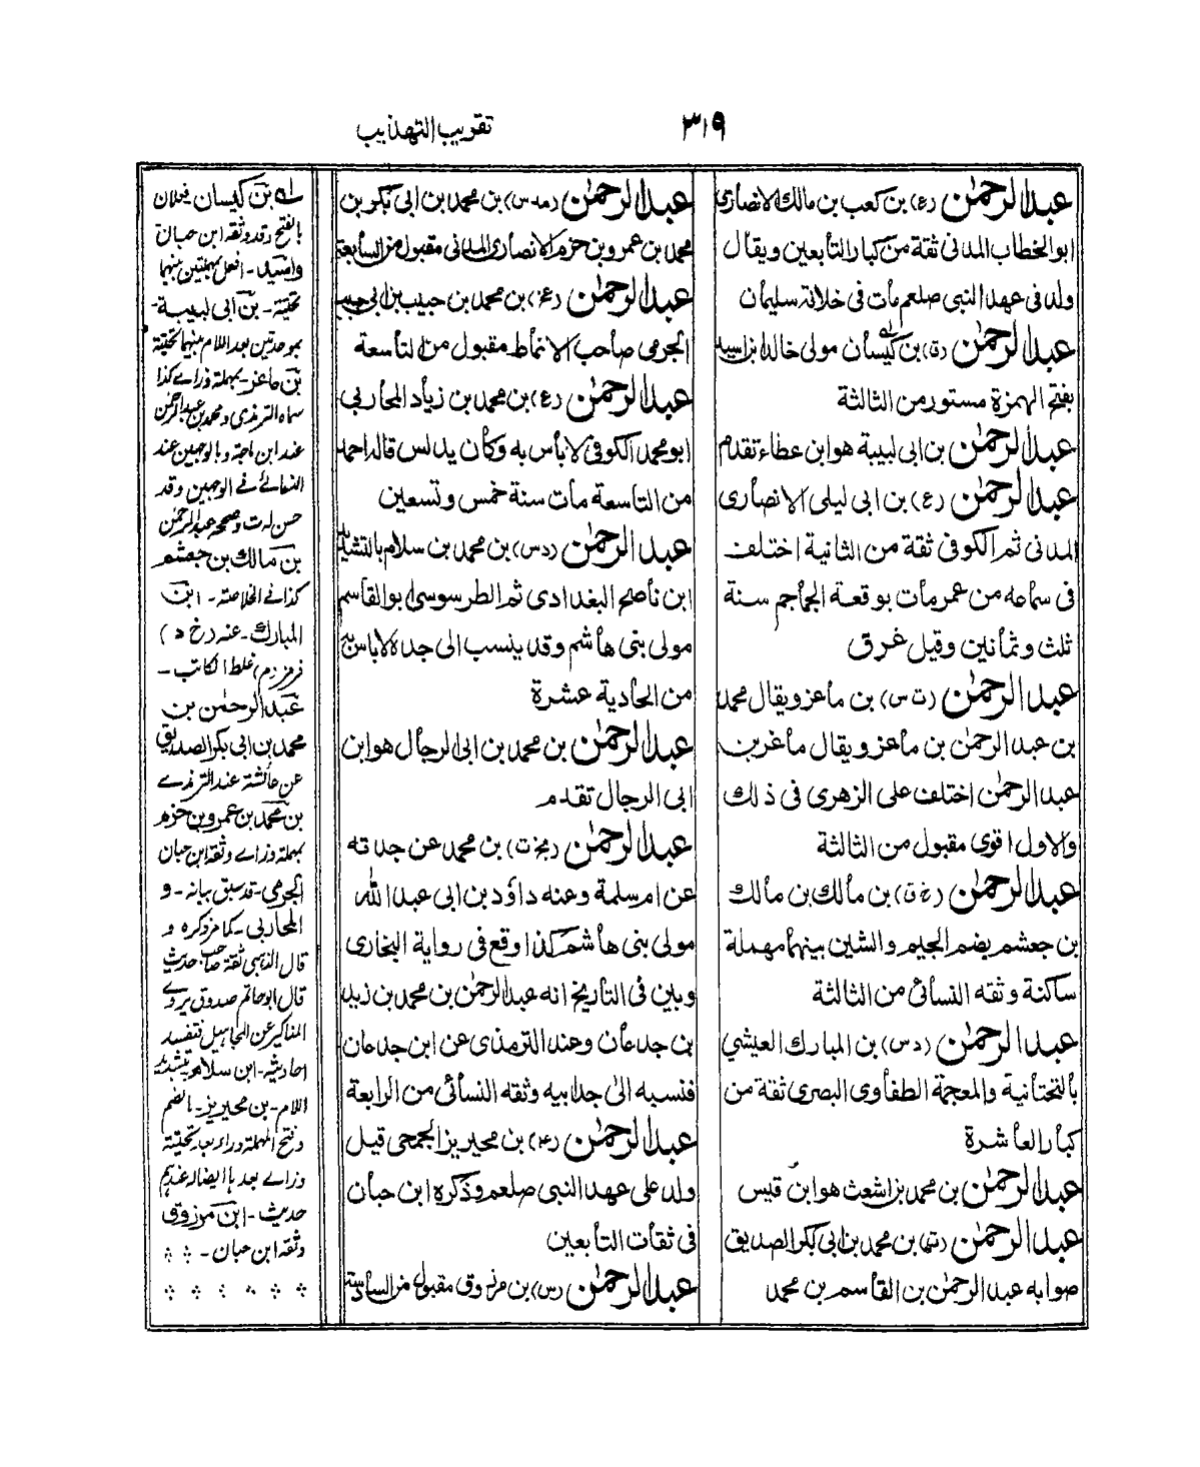 ٣١٩
تقريب التهذيب
عبدالرحمٰن (ع) بن كعب بن مالك الانصارى
ابو الخطاب المدنى ثقة من كبار التابعين ويقال
ولد فى عهد النبى صلعم مات فى خلافة سليمان
عبدالرحمٰن (ق) بن كيسان مولى خالد بن اسيد
بفتح الهمزة مستور من الثالثة
عبدالرحمٰن بن ابى لبيبة هو ابن عطاء تقدم
عبدالرحمٰن (ع) بن ابى ليلى الانصارى
المدنى ثم الكوفى ثقة من الثانية اختلف
فى سماعه من عمر مات بوقعة الجماجم سنة
ثلث وثمانين وقيل غرق
عبدالرحمٰن (ت س) بن ماعز ويقال محمد
بن عبدالرحمٰن بن ماعز ويقال ماعز بن
عبدالرحمٰن اختلف على الزهرى فى ذلك
والاول اقوى مقبول من الثالثة
عبدالرحمٰن (خ ق) بن مالك بن مالك
بن جعشم بضم الجيم والشين بينهما مهملة
ساكنة وثقه النسائى من الثالثة
عبدالرحمٰن (د س) بن المبارك العيشي
بالتحتانية والمعجمة الطفاوى البصرى ثقة من
كبار العاشرة
عبدالرحمٰن بن محمد بن اشعث هو ابن قيس
عبدالرحمٰن بن محمد بن ابى بكر الصديق
صوابه عبدالرحمٰن بن القاسم بن محمد
عبدالرحمٰن (مد س) بن محمد بن ابى بكر بن
محمد بن عمرو بن حزم الانصارى المدنى مقبول من السابعة
عبدالرحمٰن (عز) بن محمد بن حبيب بن ابى حبيب
الجرمى صاحب الانماط مقبول من التاسعة
عبدالرحمٰن (ع) بن محمد بن زياد المحاربى
ابو محمد الكوفى لا بأس به وكان يدلس قاله احمد
من التاسعة مات سنة خمس وتسعين
عبدالرحمٰن (د س) بن محمد بن سلام بالتشديد
ابن ناصح البغدادى ثم الطرسوسى ابو القاسم
مولى بنى هاشم وقد ينسب الى جده لا باس به
من الحادية عشرة
عبدالرحمٰن بن محمد بن ابى الرجال هو ابن
ابى الرجال تقدم
عبدالرحمٰن (بخ ت) بن محمد عن جدته
عن ام سلمة وعنه داؤد بن ابى عبد الله
مولى بنى هاشم كذا وقع فى رواية البخارى
وبين فى التاريخ انه عبدالرحمٰن بن محمد بن زيد
بن جدعان وعند الترمذى عن ابن جدعان
فنسبه الىٰ جد ابيه وثقه النسائى من الرابعة
عبدالرحمٰن بن محيريز الجمحى قيل
ولد على عهد النبى صلعم وذكره ابن حبان
فى ثقات التابعين
عبدالرحمٰن (س) بن مرزوق مقبول من السادسة
له بن كيسان فعلان
بالفتح وقد وثقه ابن حبان
واسيد - افعل بمهملتين بينهما
تحتية - بن ابى لبيبة -
بموحدتين بعد اللام بينهما تحتية
بن ماعز - بمهملة وزاے كذا
سماه الترمذى ومحمد بن عبدالرحمٰن
عند ابن ماجة وبالوجهين عند
النسائے فے الوجهين وقد
حسن له ت وصححه عبدالرحمٰن
بن مالك بن جعشم
كذا فے الخلاصة - ابن
المبارك - عنه (خ د)
فرمز (م) غلط الكاتب -
عبدالرحمٰن بن
محمد بن ابى بكر الصديق
عن عائشة عند الترمذے
بن محمد بن عمرو بن حزم
بمهملة وزاے وثقه ابن حبان
الجرمى - قد سبق بيانه - و
المحاربى - كما مر ذكره و
قال الذهبى ثقة صاحب حديث
قال ابو حاتم صدوق يروے
المناكير عن المجاهيل فتفسد
احاديثه - ابن سلام بتشديد
اللام - بن محيريز - بالضم
وفتح المهملة وراء بعد تحتية
وزاے بعدها ايضا له عندهم
حديث - ابن مرزوق
وثقه ابن حبان -